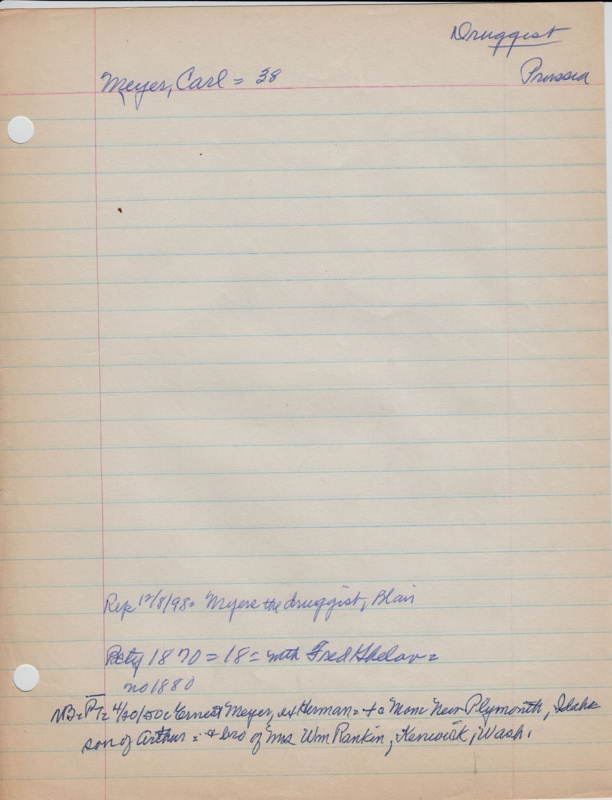 Druggist
Prussia
Meyer, Carl = 38
Rep 12/8/98 = Myers the druggist, Blair
1870 = 18 = with Fred
no 1880
NB = PT = 4/20/50 = Ernest Meyer, ex Herman = to Mom New Plymouth, Idaho
son of Arthur = & bro of Mrs Wm Rankin, Kenwick, Wash.